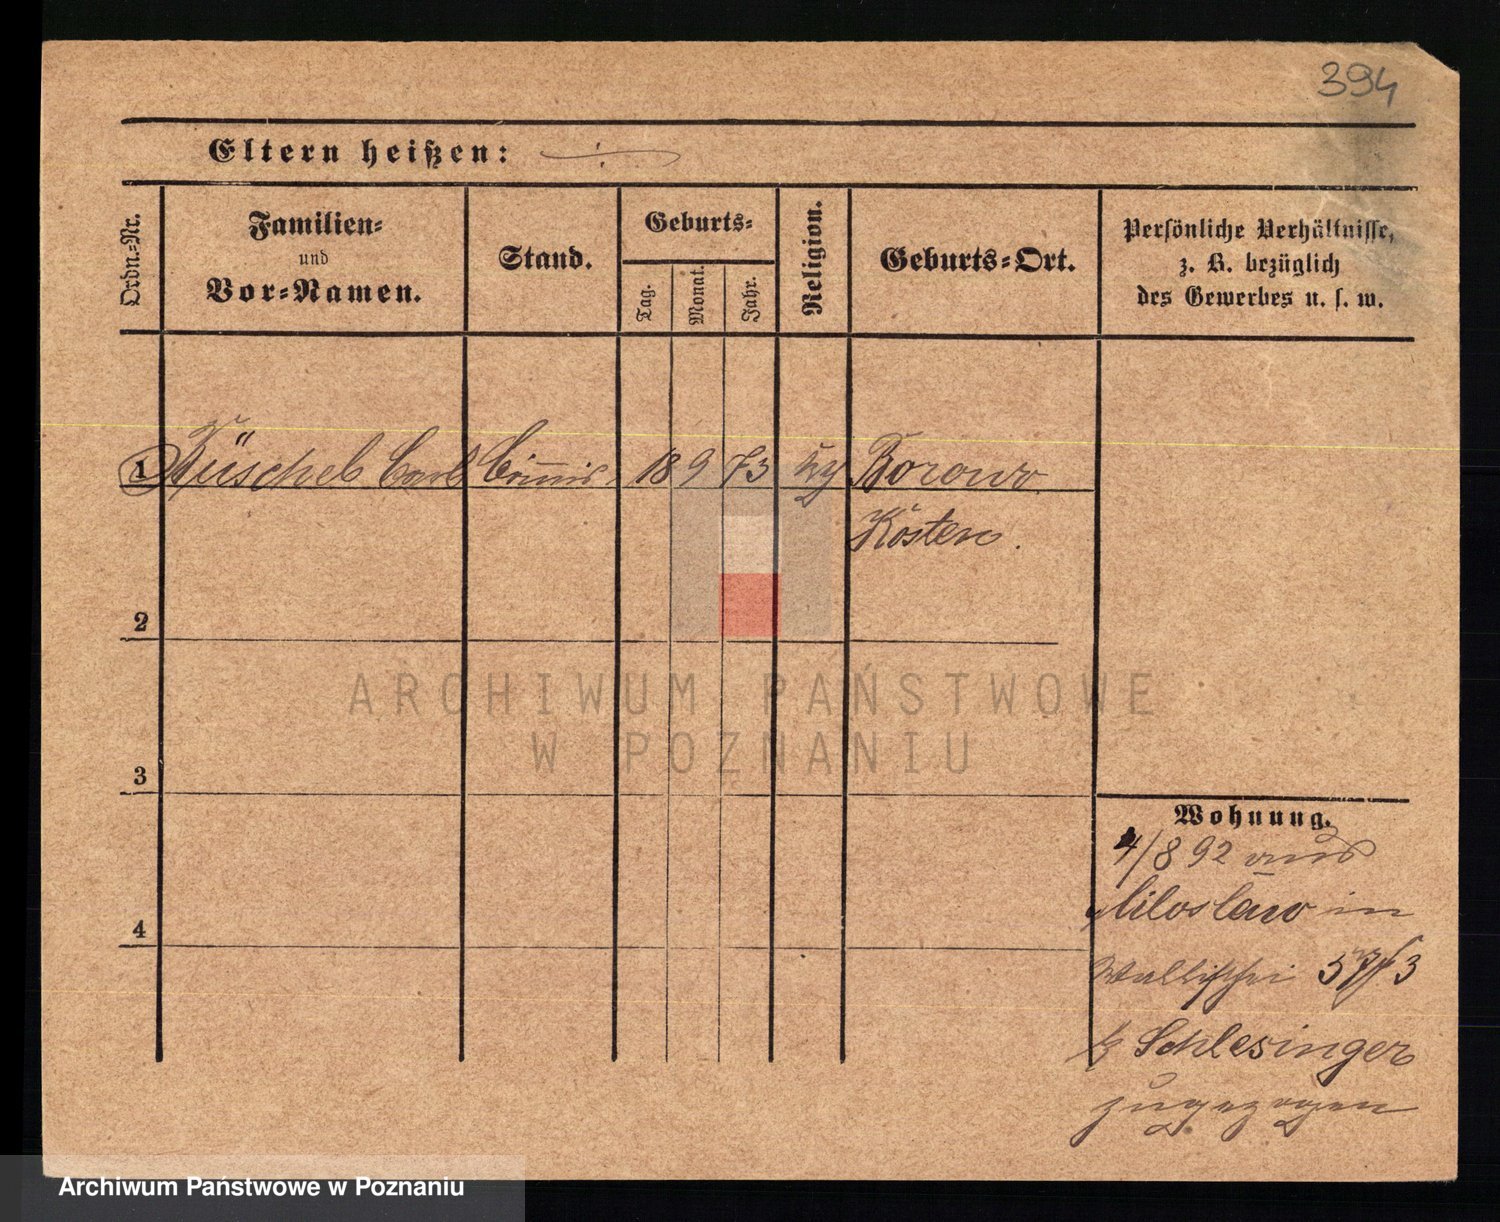 394
Eltern heißen:
Ordn.-Nr.
Familien-
und
Vor-Namen.
Stand.
Geburts-
Tag.
Monat.
Jahr.
Religion.
Geburts-Ort.
Persönliche Verhältnisse,
z. B. bezüglich
des Gewerbes u. s. w.
1 Püschel Carl Commis 18 9 73 Borowo
Kosten.
2
ARCHIWUM PAŃSTWOWE
W POZNANIU
3
Wohnung.
4/8 92 aus
Miloslaw in
4
Wallischei 57/3
b Schlesinger
zugezogen
Archiwum Państwowe w Poznaniu